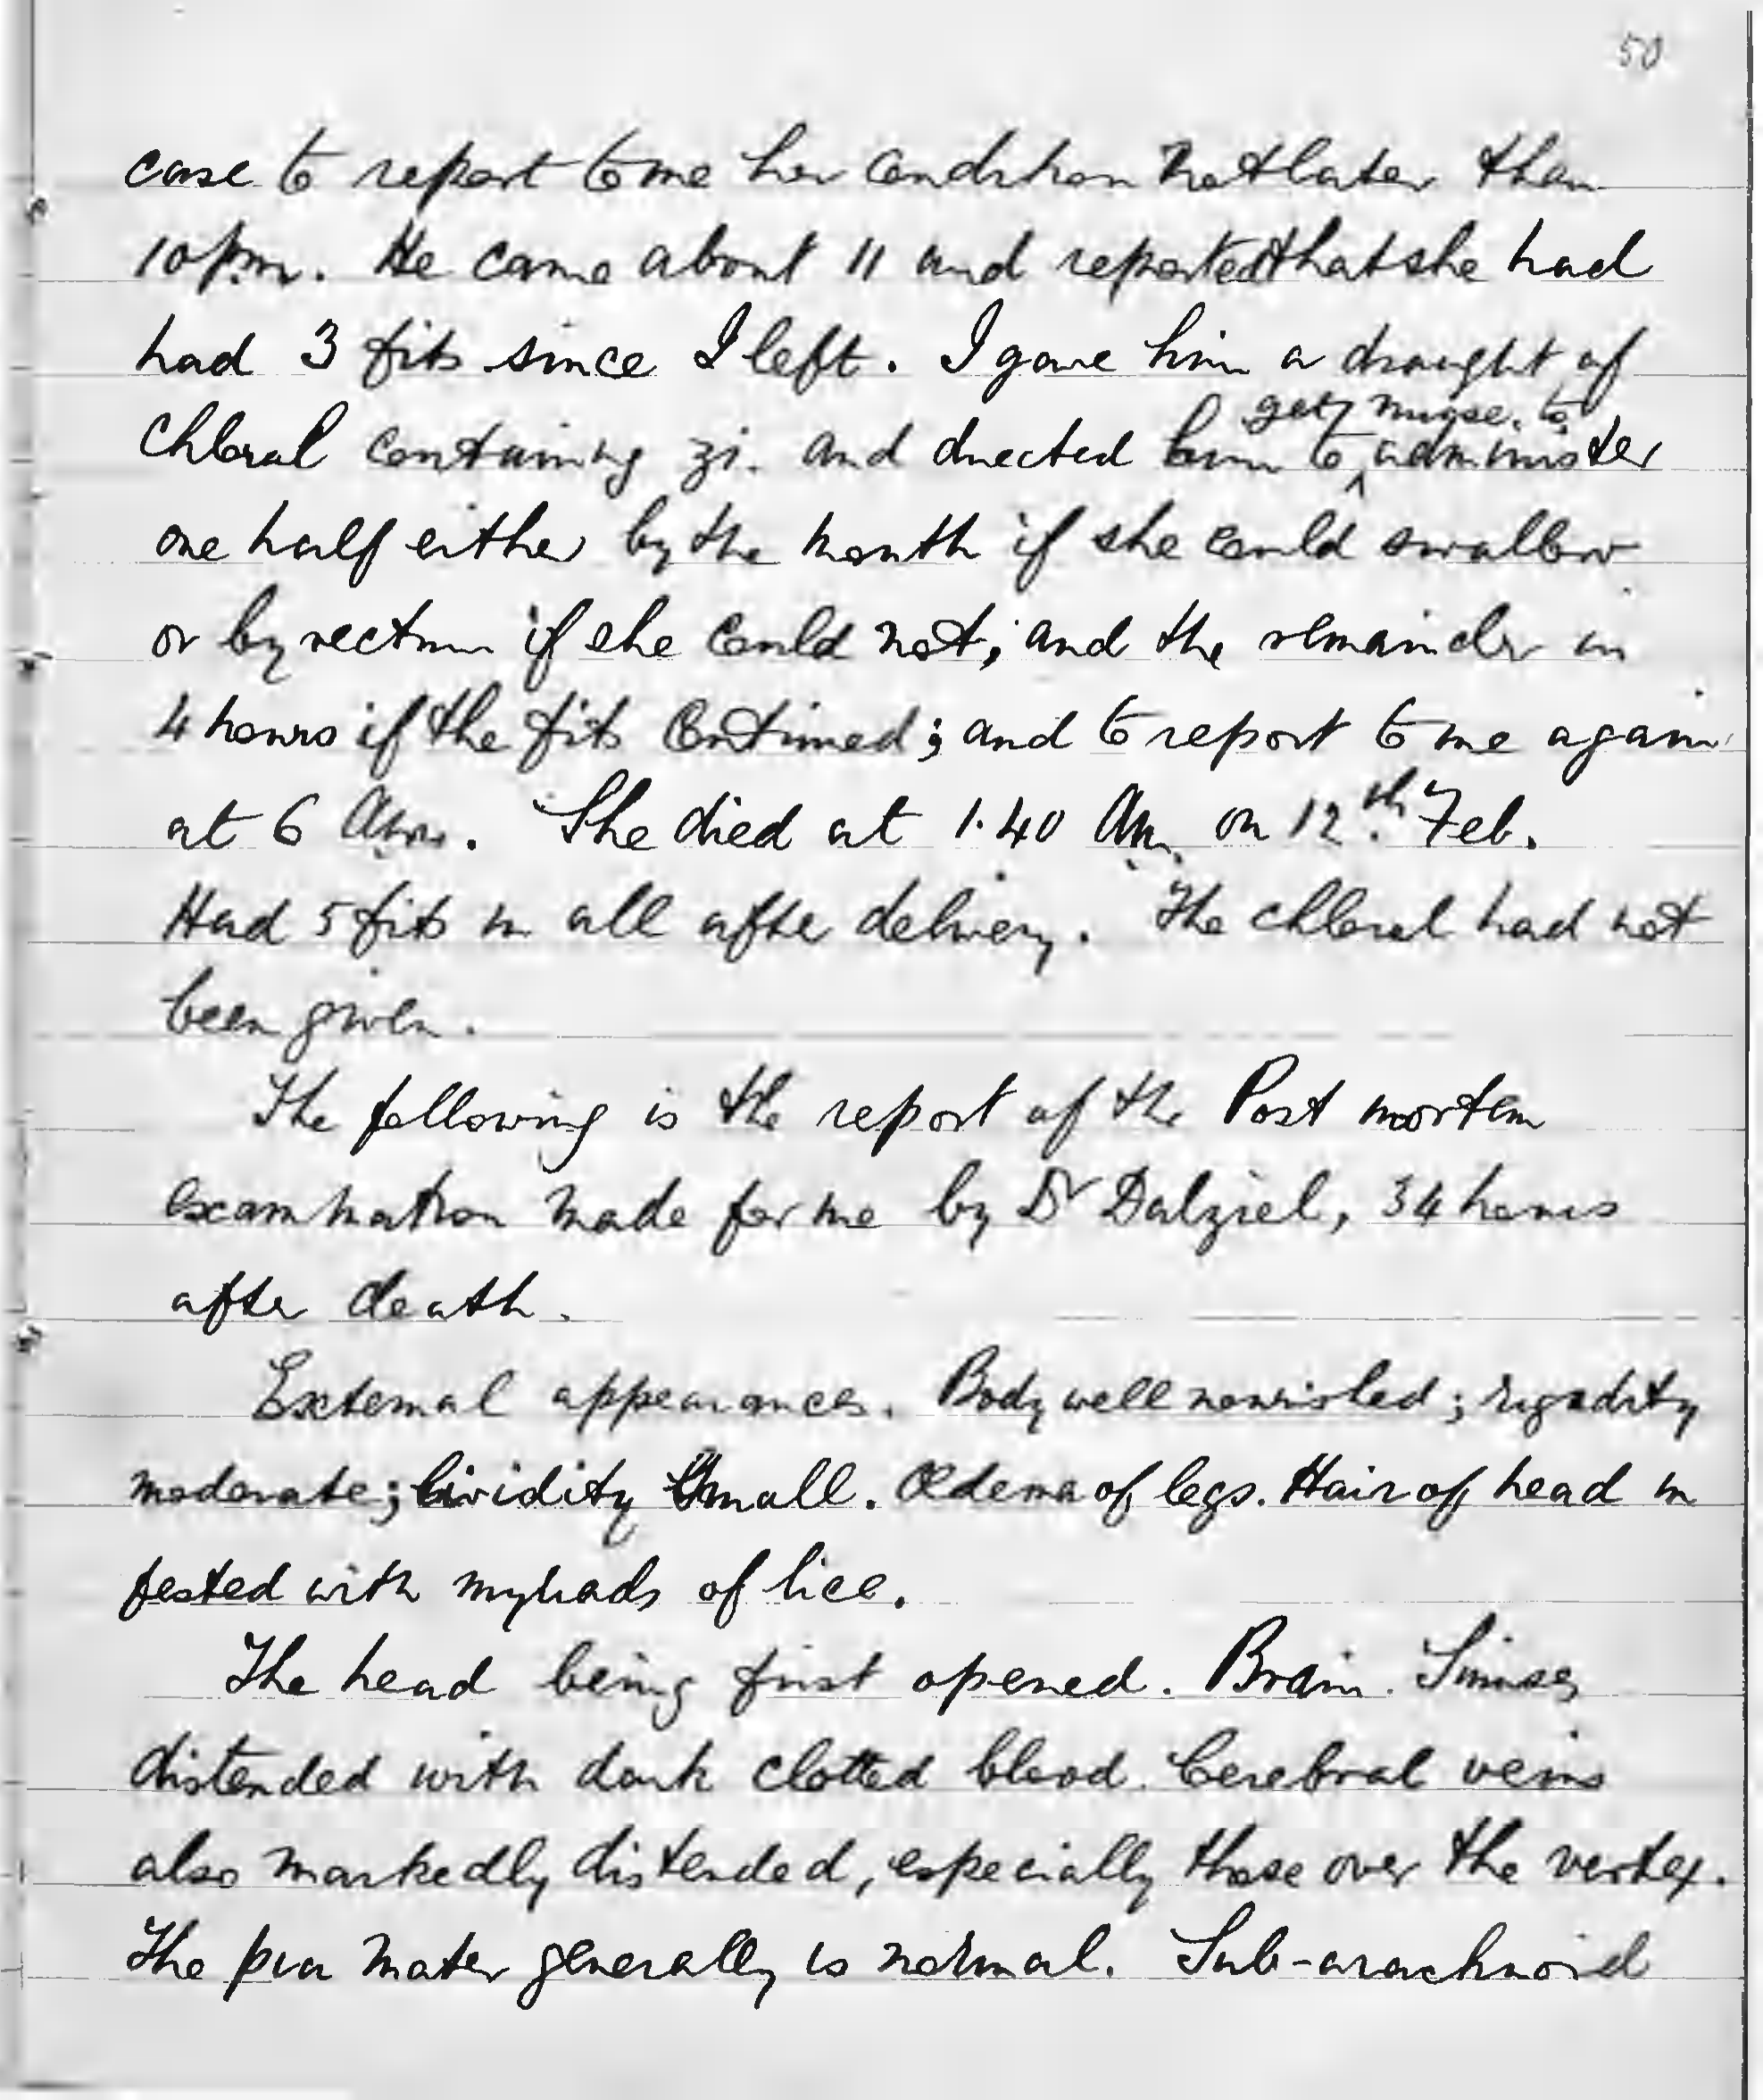 50
case to report to me her condition not later than
10 p.m. He came about 11 and reported that she had
had 3 fits since I left. I gave him a draught of
get nurse to
Chloral containing ʒi. and directed him to administer
one half either by the mouth if she could swallow
or by rectum if she could not; and the remainder in
4 hours if the fits continued; and to report to me again
at 6 a.m. She died at 1.40 a.m. on 12th Feb.
Had 5 fits in all after delivery. The chloral had not
been given.
The following is the report of the Post mortem
examination made for me by Dr Dalziel, 34 hours
after death.
External appearances. Body well nourished; rigidity
moderate; lividity small. Œdema of legs. Hair of head in
fested with myriads of lice.
The head being first opened. Brain. Sinuses
distended with dark clotted blood. Cerebral veins
also markedly distended, especially those over the vertex.
The pia mater generally is normal. Sub-arachnoid